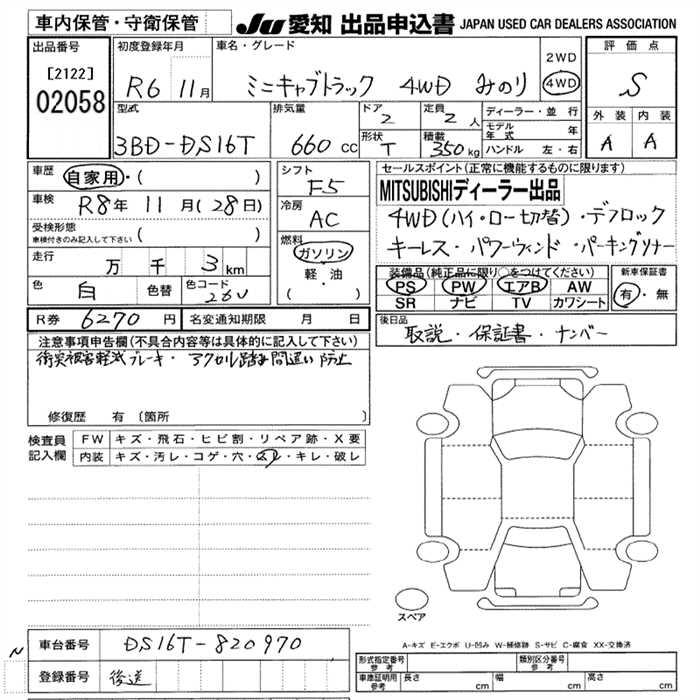 車内保管・守衛保管
JU 愛知 出品申込書 JAPAN USED CAR DEALERS ASSOCIATION
出品番号
[2122]
02058
初度登録年月
R6 11月
車名・グレード
ミニキャブトラック 4WD みのり
2WD
4WD
評価点
S
外装 内装
A A
型式
3BD-DS16T
排気量
660 cc
ドア
2
定員
2人
形状
T
積載
350kg
ディーラー・並行
モデル年式 年
ハンドル 左・右
車歴
自家用・( )
車検
R8年 11月(28日)
受検形態
車検付きのみ記入して下さい ( )
走行
万 千 3 km
色
白
色替
色コード
26U
シフト
F5
冷房
AC
燃料
ガソリン
軽・油
( ・ )
セールスポイント(正常に機能するものに限ります)
MITSUBISHIディーラー出品
4WD(ハイ・ロー切替)・デフロック
キーレス・パワーウィンド・パーキングソナー
装備品(純正品に限り○をつけてください)
PS PW エアB AW
SR ナビ TV カワシート
新車保証書
有・無
R券 6270 円
名変通知期限 月 日
後日品
取説・保証書・ナンバー
注意事項申告欄(不具合内容等は具体的に記入して下さい)
衝突被害軽減ブレーキ・アクセル踏み間違い防止
修復歴 有〔箇所
検査員記入欄
FW キズ・飛石・ヒビ割・リペア跡・X要
内装 キズ・汚レ・コゲ・穴・スレ・キレ・破レ
スペア
A-キズ E-エクボ U-凹み W-補修跡 S-サビ C-腐食 XX-交換済
N
車台番号
DS16T-820970
登録番号
後送
形式指定番号
参考
類別区分番号
参考
車庫証明用
参考
長さ cm 幅 cm 高さ cm